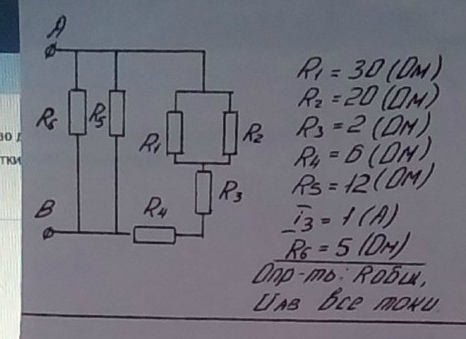 A
R6
R5
R1
R2
R3
R4
B
R1 = 30 (Ом)
R2 = 20 (Ом)
R3 = 2 (Ом)
R4 = 6 (Ом)
R5 = 12 (Ом)
i3 = 1 (А)
R6 = 5 (Ом)
Опр-ть: Rобщ,
UАВ все токи.